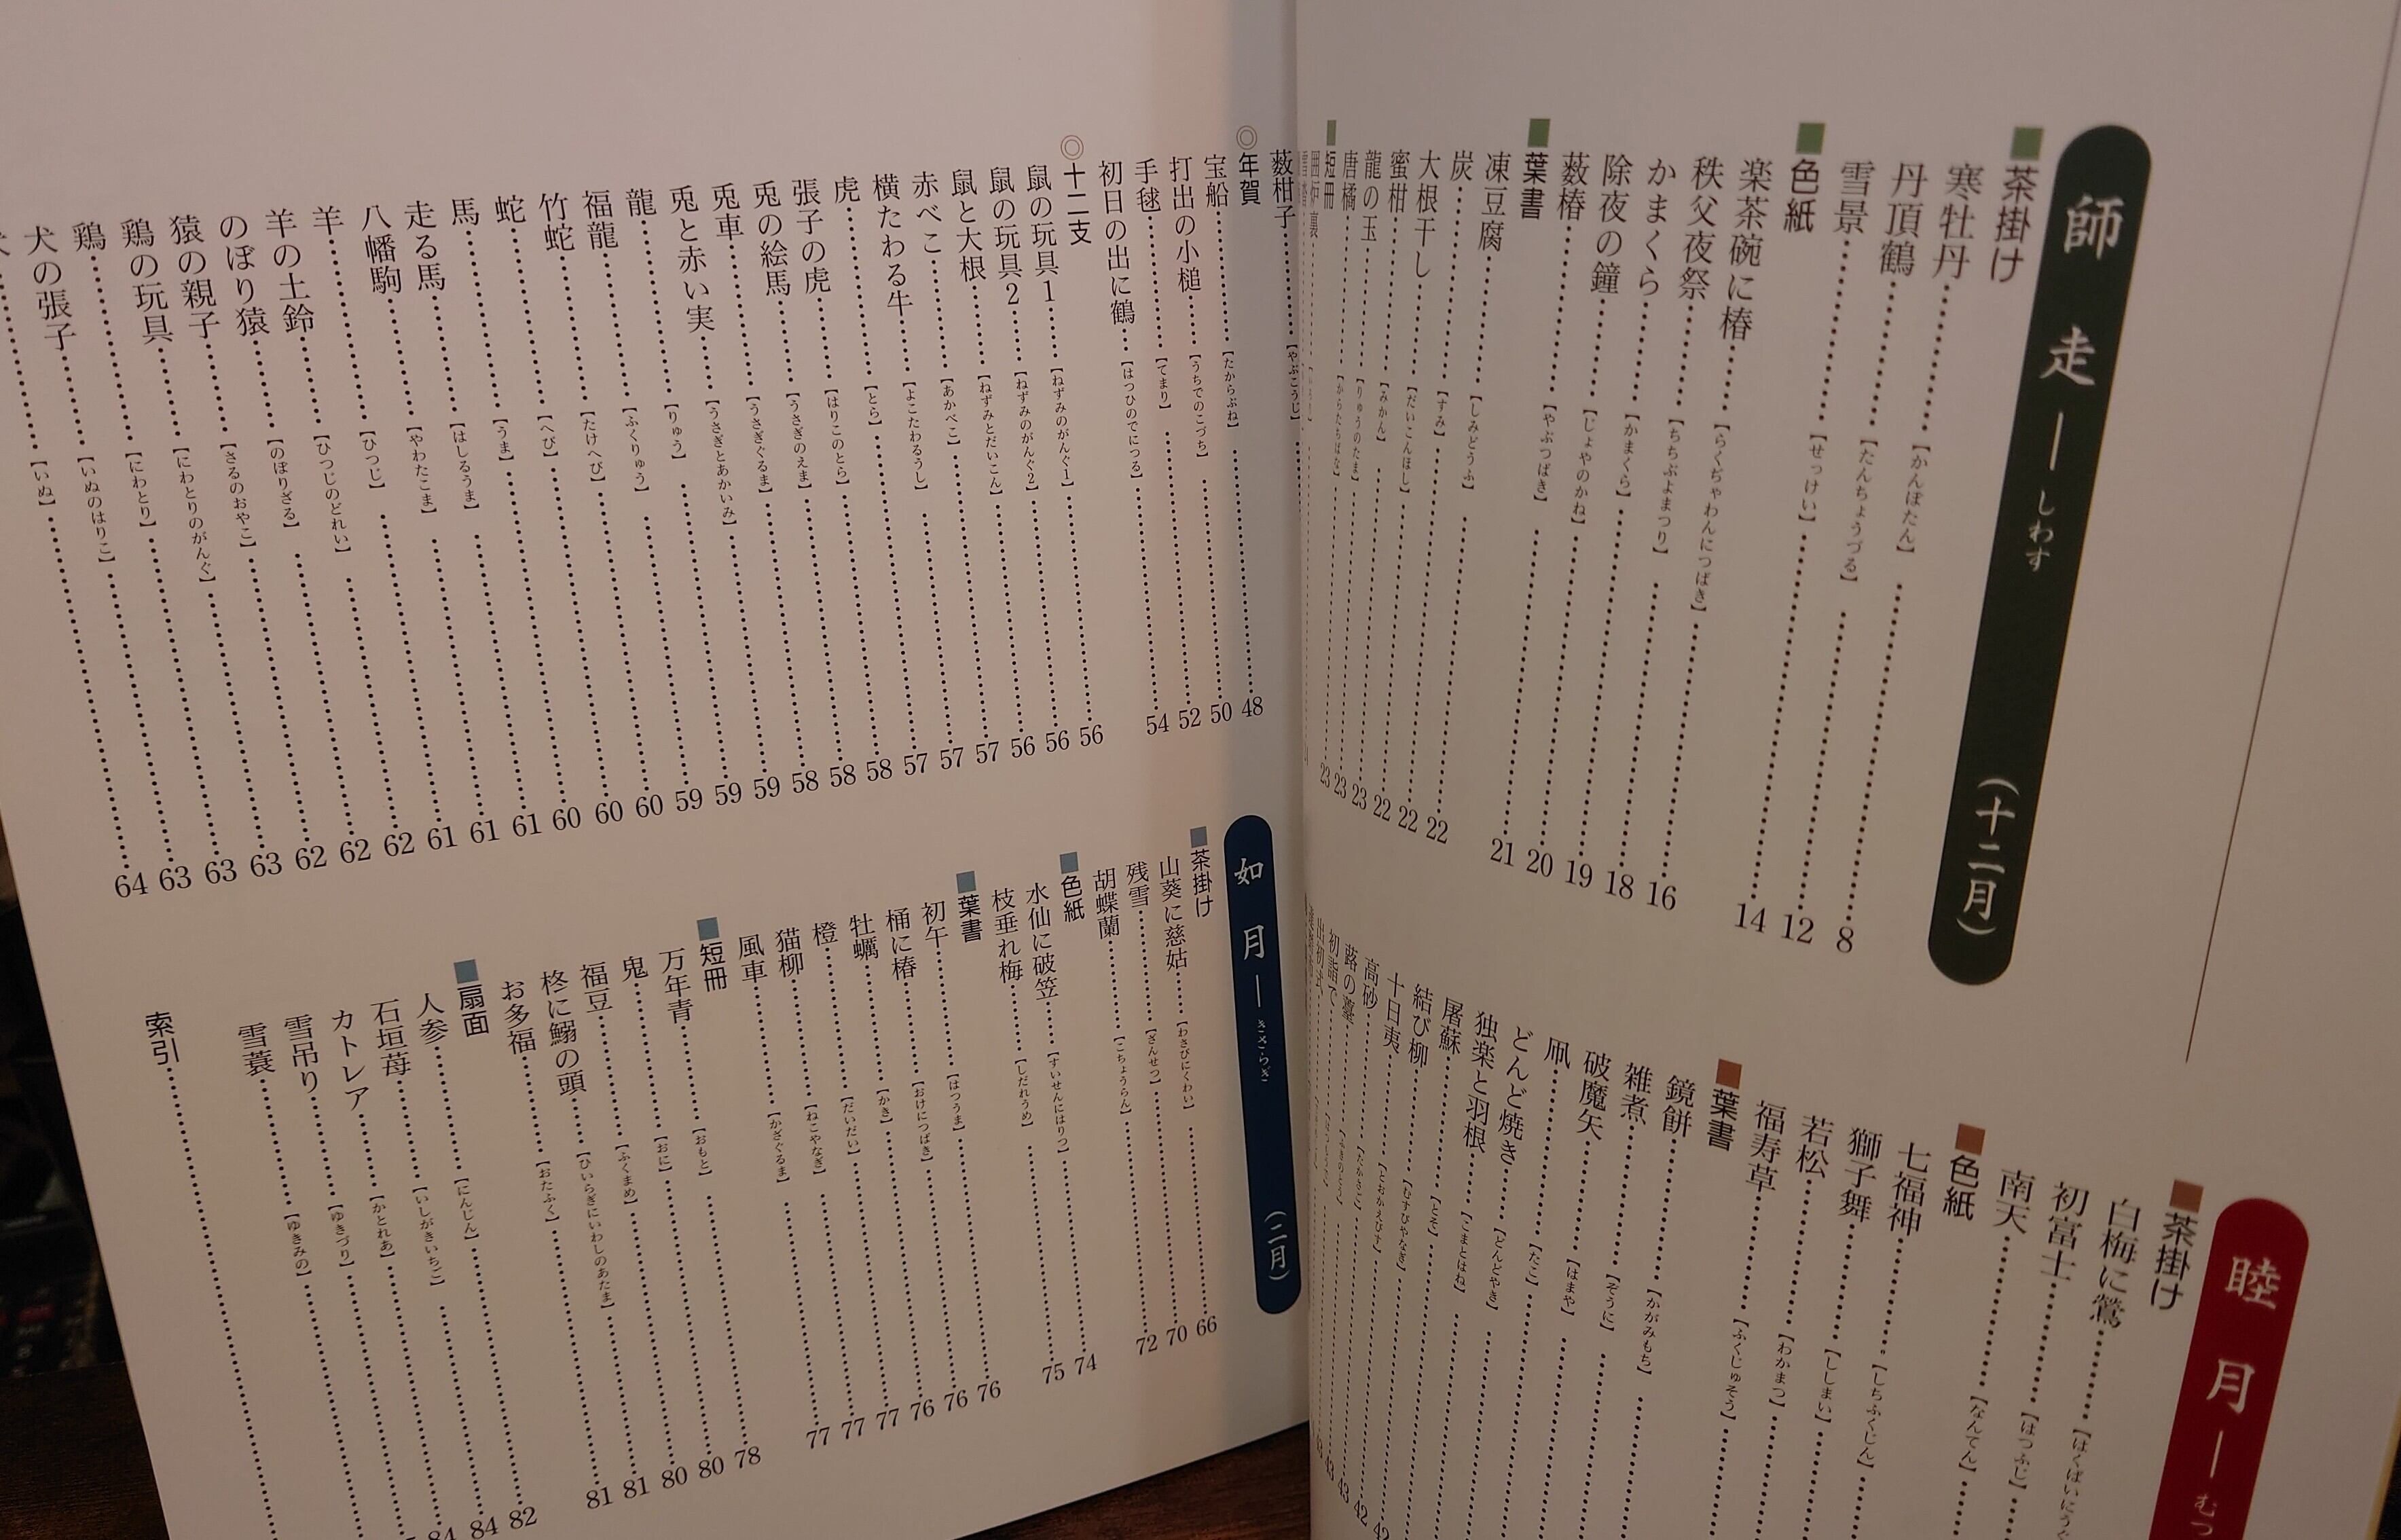 師走―しわす（十二月）
■茶掛け
寒牡丹……【かんぼたん】……8
丹頂鶴……【たんちょうづる】……12
雪景……【せっけい】……14
■色紙
楽茶碗に椿……【らくぢゃわんにつばき】……16
秩父夜祭……【ちちぶよまつり】……18
かまくら……【かまくら】……19
除夜の鐘……【じょやのかね】……20
薮椿……【やぶつばき】……21
■葉書
凍豆腐……【しみどうふ】……22
炭……【すみ】……22
大根干し……【だいこんほし】……22
蜜柑……【みかん】……23
龍の玉……【りゅうのたま】……23
唐橘……【からたちばな】……23
■短冊
囲炉裏……
睦月―むつ
■茶掛け
白梅に鶯……【はくばいにうぐ
初富士……【はつふじ】……
南天……【なんてん】……
■色紙
七福神……【しちふくじん】……
獅子舞……【ししまい】……
若松……【わかまつ】……
福寿草……【ふくじゅそう】……
■葉書
鏡餅……【かがみもち】……
雑煮……【ぞうに】……
破魔矢……【はまや】……
凧……【たこ】……
どんど焼き……【どんどやき】……
独楽と羽根……【こまとはね】……
屠蘇……【とそ】……
結び柳……【むすびやなぎ】……
十日夷……【とおかえびす】……
高砂……【たかさご】……
蕗の薹……
初詣で……
出初式……
薮柑子……【やぶこうじ】……
◎年賀
宝船……【たからぶね】……48
打出の小槌……【うちでのこづち】……50
手毬……【てまり】……52
初日の出に鶴……【はつひのでにつる】……54
◎十二支
鼠の玩具1……【ねずみのがんぐ1】……56
鼠の玩具2……【ねずみのがんぐ2】……56
鼠と大根……【ねずみとだいこん】……56
赤べこ……【あかべこ】……57
横たわる牛……【よこたわるうし】……57
虎……【とら】……57
張子の虎……【はりこのとら】……58
兎の絵馬……【うさぎのえま】……58
兎車……【うさぎぐるま】……58
兎と赤い実……【うさぎとあかいみ】……59
龍……【りゅう】……59
福龍……【ふくりゅう】……59
竹蛇……【たけへび】……60
蛇……【へび】……60
馬……【うま】……60
走る馬……【はしるうま】……61
八幡駒……【やわたこま】……61
羊……【ひつじ】……61
羊の土鈴……【ひつじのどれい】……62
のぼり猿……【のぼりざる】……62
猿の親子……【さるのおやこ】……62
鶏の玩具……【にわとりのがんぐ】……63
鶏……【にわとり】……63
犬の張子……【いぬのはりこ】……63
犬……【いぬ】……64
如月―きさらぎ（二月）
■茶掛け
山葵に慈姑……【わさびにくわい】……66
残雪……【ざんせつ】……70
胡蝶蘭……【こちょうらん】……72
■色紙
水仙に破笠……【すいせんにはりつ】……74
枝垂れ梅……【しだれうめ】……75
■葉書
初午……【はつうま】……76
桶に椿……【おけにつばき】……76
牡蠣……【かき】……76
橙……【だいだい】……77
猫柳……【ねこやなぎ】……77
風車……【かざぐるま】……77
■短冊
万年青……【おもと】……78
鬼……【おに】……80
福豆……【ふくまめ】……80
柊に鰯の頭……【ひいらぎにいわしのあたま】……81
お多福……【おたふく】……81
■扇面
人参……【にんじん】……82
石垣苺……【いしがきいちご】……84
カトレア……【かとれあ】……84
雪吊り……【ゆきづり】……
雪蓑……【ゆきみの】……
索引……